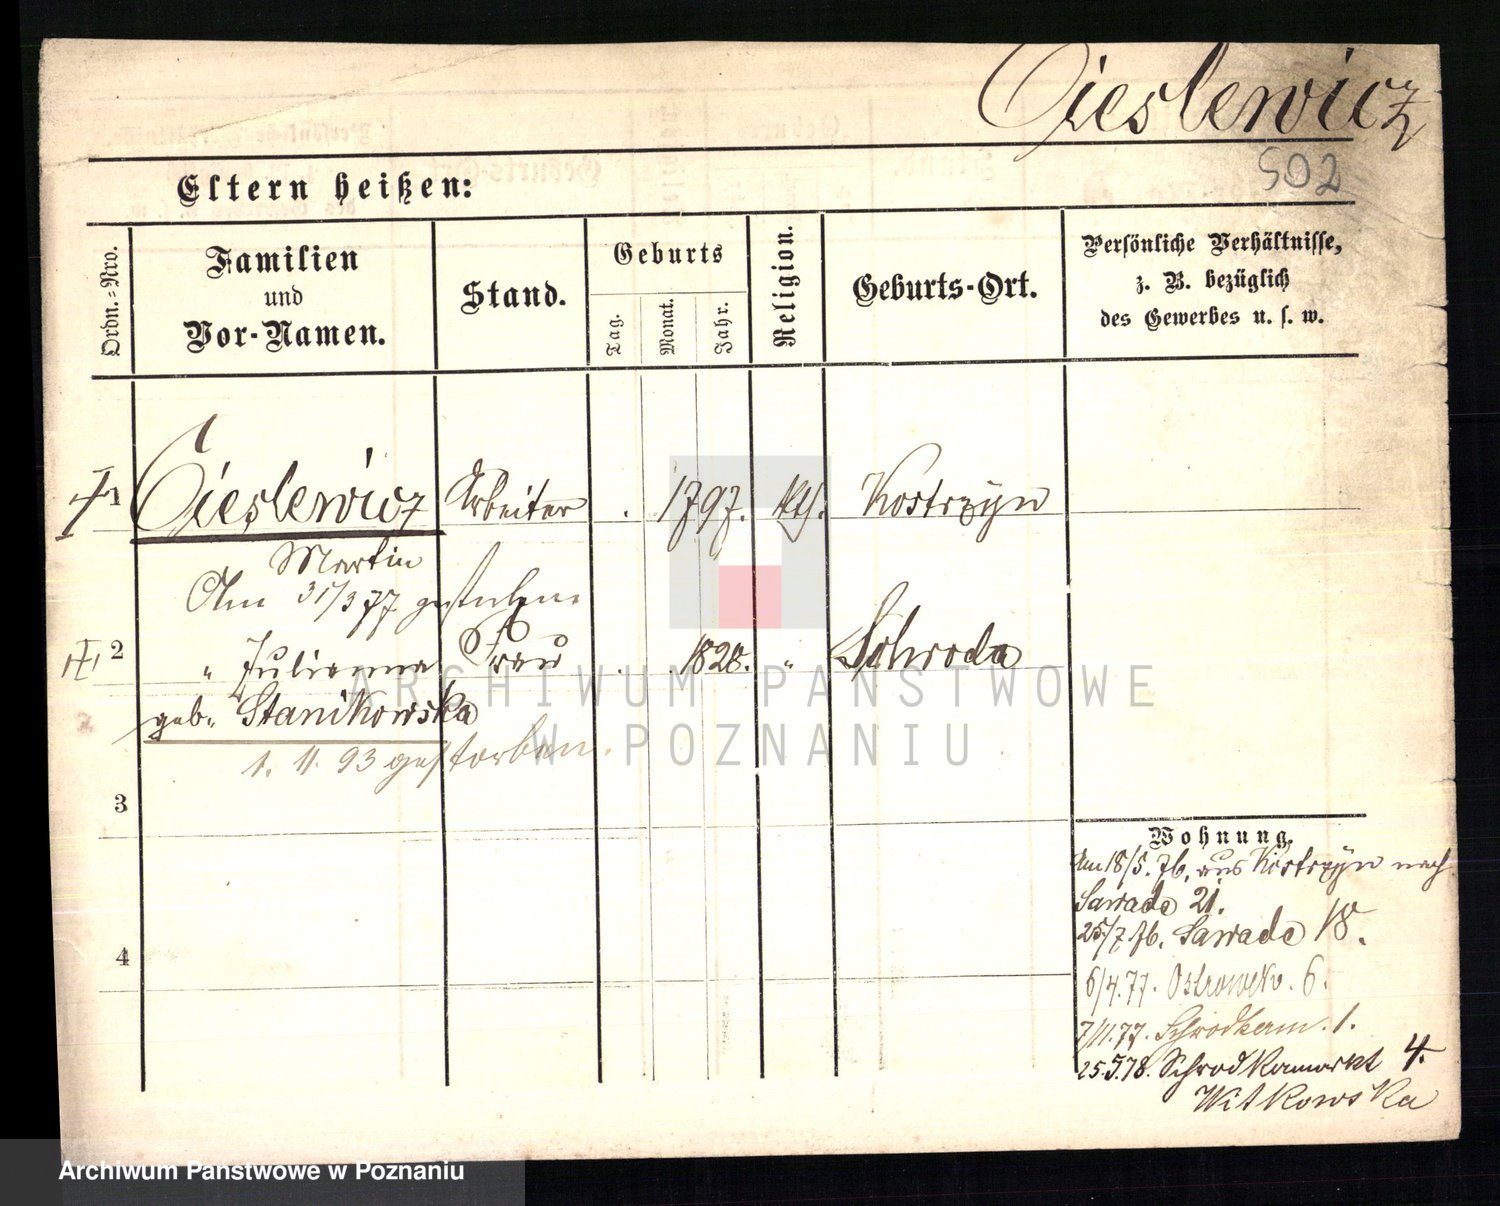 Cieslewicz
502
Eltern heißen:
Ordn.=Nro.
Familien
und
Vor-Namen.
Stand.
Geburts
Tag.
Monat.
Jahr.
Religion.
Geburts-Ort.
Persönliche Verhältnisse,
z. B. bezüglich
des Gewerbes u. s. w.
1 Cieslewicz Arbeiter . 1797. kth. Kostrzyn
Martin
Am 31/3 77 gestorben
2 " Julianna Frau . . 1828. " Schroda
geb. Stanikowska
1. 11. 93 gestorben.
3
4
Wohnung.
Am 18/5. 76. aus Kostrzyn nach
Sawade 21.
25/7 76. Sawade 18.
6/4. 77. Ostrowek. 6.
7/11. 77. Schrodkam. 1.
25.5.78. Schrodkamarkt 4.
Witkowska
ARCHIWUM PAŃSTWOWE
W POZNANIU
Archiwum Państwowe w Poznaniu